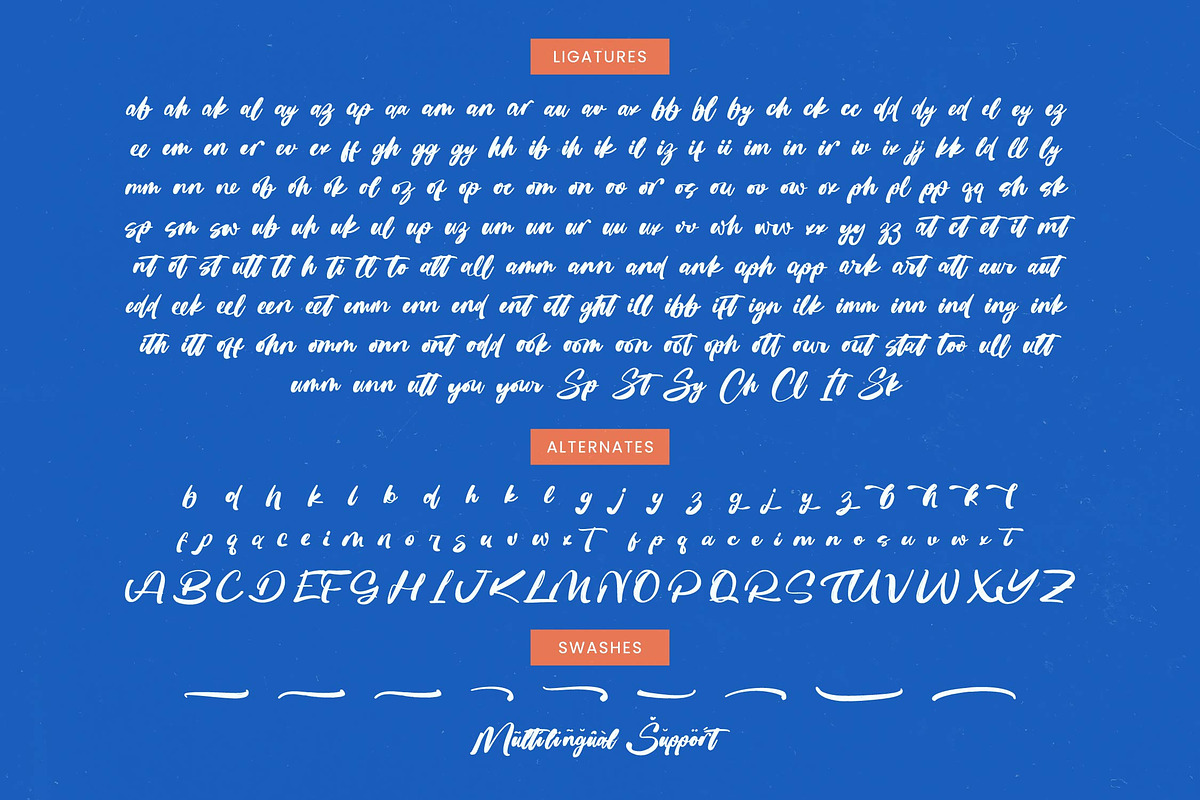 LIGATURES
ab ah ak al ay az ap aa am an ar au av ax bb bl by ch ck cc dd dy ed el ey ez
ee em en er ev ex ff gh gg gy hh ib ih ik il iz if ii im in ir iv ix jj kk ld ll ly
mm nn ne ob oh ok ol oz of op oc om on oo or os ou ov ow ox ph pl pp qq sh sk
sp sm sw ub uh uk ul up uz um un ur uu ux vv wh ww xx yy zz at ct et it mt
nt ot st utt tt h ti tl to all amm ann and ank aph app ark art att awr aut
edd eek eel een eet emm enn end ent ett ght ill ibb ift ign ilk imm inn ind ing ink
ith itt off ohn omm onn ont odd ook oom oon oot oph ott our out stat too ull utt
umm unn utt you your Sp St Sy Ch Cl It Sk
ALTERNATES
b d h k l b d h k l g j y z g j y z b h k l
f p q a c e i m n o r s u v w x T f p q a c e i m n o s u v w x t
A B C D E F G H I J K L M N O P Q R S T U V W X Y Z
SWASHES
Mültilíñğûàl Šŭppöŕt